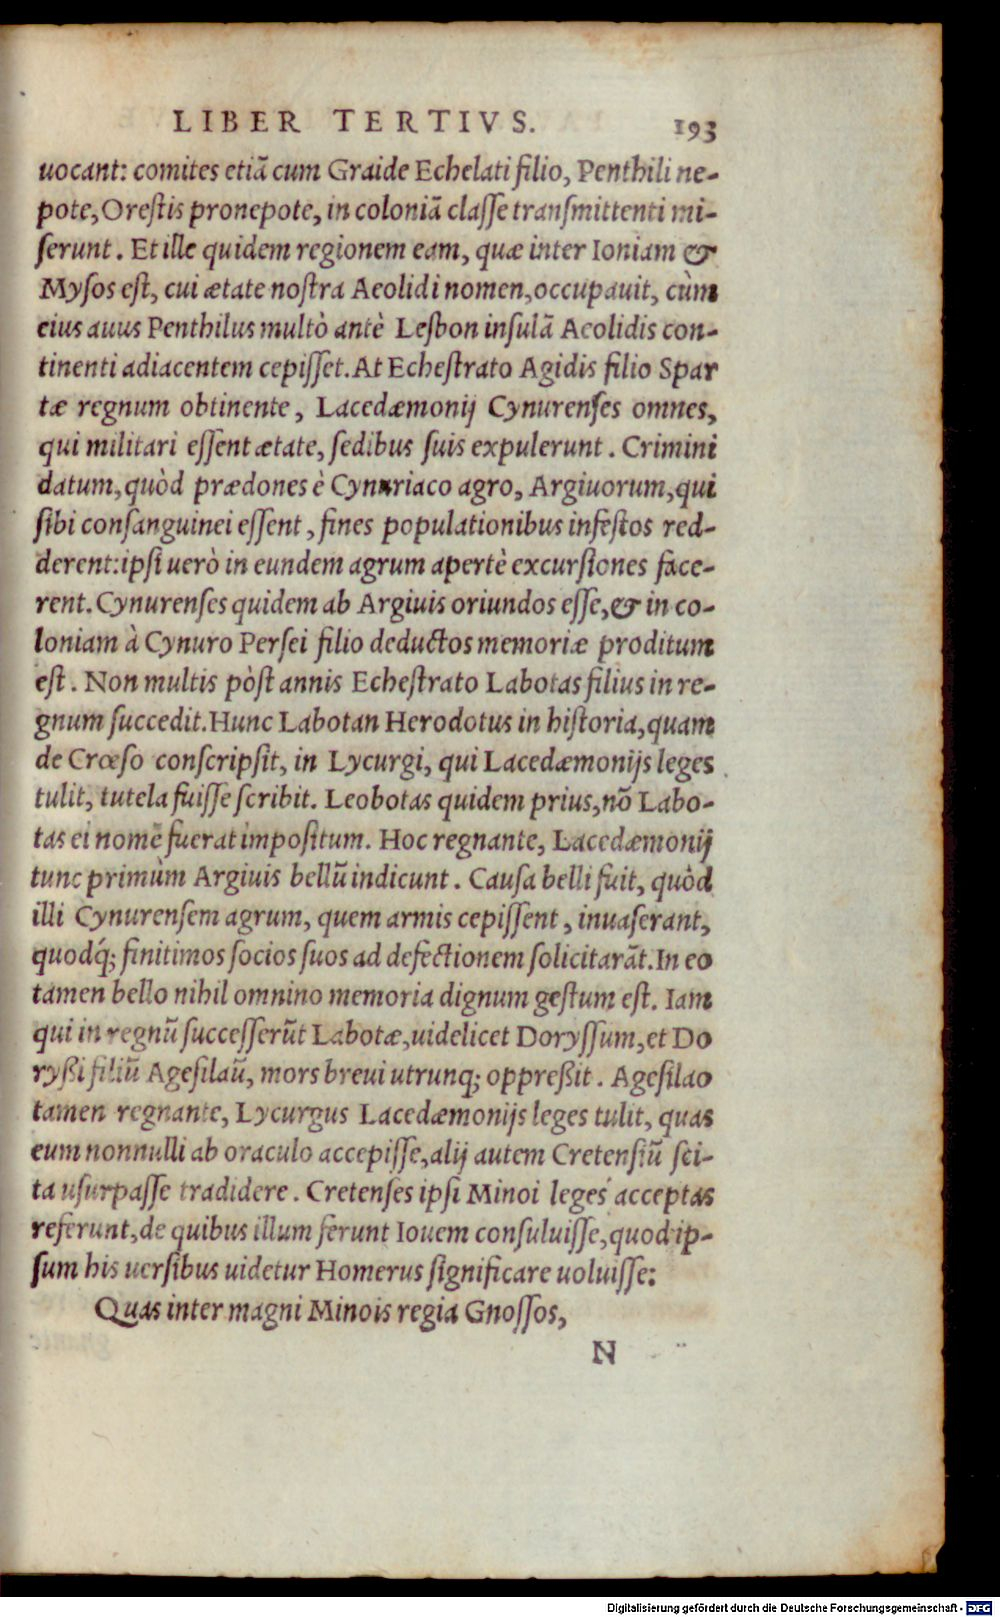 LIBER TERTIVS. 193
uocant: comites etiã cum Graide Echelati filio, Penthili ne-
pote, Orestis pronepote, in coloniã classe transmittenti mi-
serunt. Et ille quidem regionem eam, quæ inter Ioniam &
Mysos est, cui ætate nostra Aeolidi nomen, occupauit, cùm
eius auus Penthilus multò antè Lesbon insulã Aeolidis con-
tinenti adiacentem cepisset. At Echestrato Agidis filio Spar
tæ regnum obtinente, Lacedæmonij Cynurenses omnes,
qui militari essent ætate, sedibus suis expulerunt. Crimini
datum, quòd prædones è Cynuriaco agro, Argiuorum, qui
sibi consanguinei essent, fines populationibus infestos red-
derent: ipsi uerò in eundem agrum apertè excursiones face-
rent. Cynurenses quidem ab Argiuis oriundos esse, & in co-
loniam à Cynuro Persei filio deductos memoriæ proditum
est. Non multis pòst annis Echestrato Labotas filius in re-
gnum succedit. Hunc Labotan Herodotus in historia, quam
de Crœso conscripsit, in Lycurgi, qui Lacedæmonijs leges
tulit, tutela fuisse scribit. Leobotas quidem prius, nõ Labo-
tas ei nomẽ fuerat impositum. Hoc regnante, Lacedæmonij
tunc primùm Argiuis bellũ indicunt. Causa belli fuit, quòd
illi Cynurensem agrum, quem armis cepissent, inuaserant,
quodq́; finitimos socios suos ad defectionem solicitarãt. In eo
tamen bello nihil omnino memoria dignum gestum est. Iam
qui in regnũ successerũt Labotæ, uidelicet Doryssum, et Do
ryßi filiũ Agesilaũ, mors breui utrunq; oppreßit. Agesilao
tamen regnante, Lycurgus Lacedæmonijs leges tulit, quas
eum nonnulli ab oraculo accepisse, alij autem Cretensiũ sci-
ta usurpasse tradidere. Cretenses ipsi Minoi leges acceptas
referunt, de quibus illum ferunt Iouem consuluisse, quod ip-
sum his uersibus uidetur Homerus significare uoluisse:
Quas inter magni Minois regia Gnossos,
N
Digitalisierung gefördert durch die Deutsche Forschungsgemeinschaft - DFG